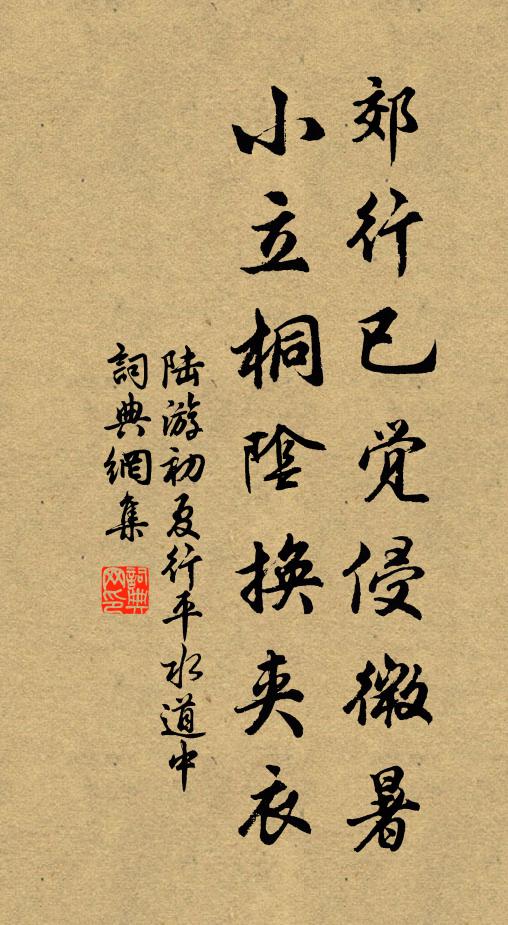 郊行已觉侵微暑
小立桐陰換夾衣
陆游初夏行平水道中
詞典網集
詞典
网印